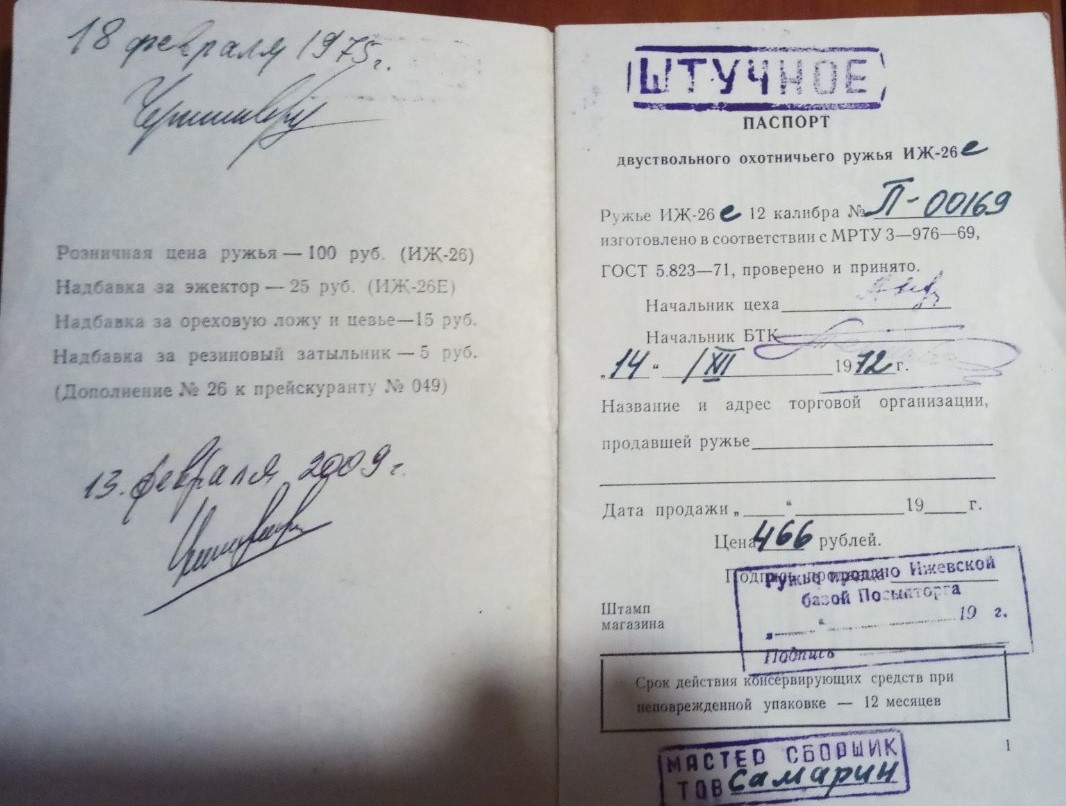 18 февраля 1975г.
Розничная цена ружья — 100 руб. (ИЖ-26)
Надбавка за эжектор — 25 руб. (ИЖ-26Е)
Надбавка за ореховую ложу и цевье—15 руб.
Надбавка за резиновый затыльник — 5 руб.
(Дополнение № 26 к прейскуранту № 049)
13. февраля 2009г.
ШТУЧНОЕ
ПАСПОРТ
двуствольного охотничьего ружья ИЖ-26е
Ружье ИЖ-26 е 12 калибра № П-00169
изготовлено в соответствии с МРТУ 3—976—69,
ГОСТ 5.823—71, проверено и принято.
Начальник цеха
Начальник БТК
„14“ XII 1972г.
Название и адрес торговой организации,
продавшей ружье
Дата продажи „ “ 19 г.
Цена 466 рублей.
Подпись продавца
Ружье продано Ижевской
базой Посылторга
„ “ 19 г.
Подпись
Штамп
магазина
Срок действия консервирующих средств при
неповрежденной упаковке — 12 месяцев
МАСТЕР СБОРЩИК
ТОВ Самарин
1